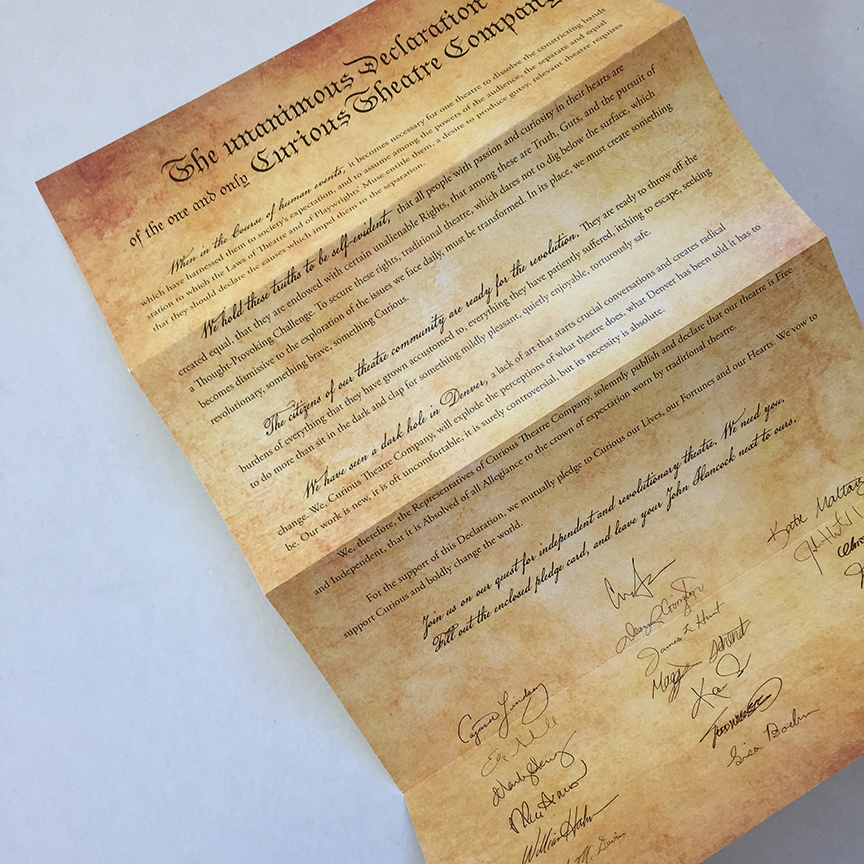 The unanimous Declaration
of the one and only Curious Theatre Company
When in the Course of human events, it becomes necessary for one theatre to dissolve the constricting bands
which have harnessed them to society's expectation, and to assume among the powers of the audience, the separate and equal
station to which the Laws of Theatre and of Playwrights' Muse entitle them, a desire to produce gutsy, relevant theatre requires
that they should declare the causes which impel them to the separation.
We hold these truths to be self-evident, that all people with passion and curiosity in their hearts are
created equal, that they are endowed with certain unalienable Rights, that among these are Truth, Guts, and the pursuit of
a Thought-Provoking Challenge. To secure these rights, traditional theatre, which dares not to dig below the surface, which
becomes dismissive to the exploration of the issues we face daily, must be transformed. In its place, we must create something
revolutionary, something brave, something Curious.
The citizens of our theatre community are ready for the revolution. They are ready to throw off the
burdens of everything that they have grown accustomed to, everything they have patiently suffered, itching to escape, seeking
to do more than sit in the dark and clap for something mildly pleasant, quietly enjoyable, torturously safe.
We have seen a dark hole in Denver, a lack of art that starts crucial conversations and creates radical
change. We, Curious Theatre Company, will explode the perceptions of what theatre does, what Denver has been told it has to
be. Our work is new, it is oft uncomfortable, it is surely controversial, but its necessity is absolute.
We, therefore, the Representatives of Curious Theatre Company, solemnly publish and declare that our theatre is Free
and Independent, that it is Absolved of all Allegiance to the crown of expectation worn by traditional theatre.
For the support of this Declaration, we mutually pledge to Curious our Lives, our Fortunes and our Hearts. We vow to
support Curious and boldly change the world.
Join us on our quest for independent and revolutionary theatre. We need you.
Fill out the enclosed pledge card, and leave your John Hancock next to ours.
James E Hunt
William Hahn